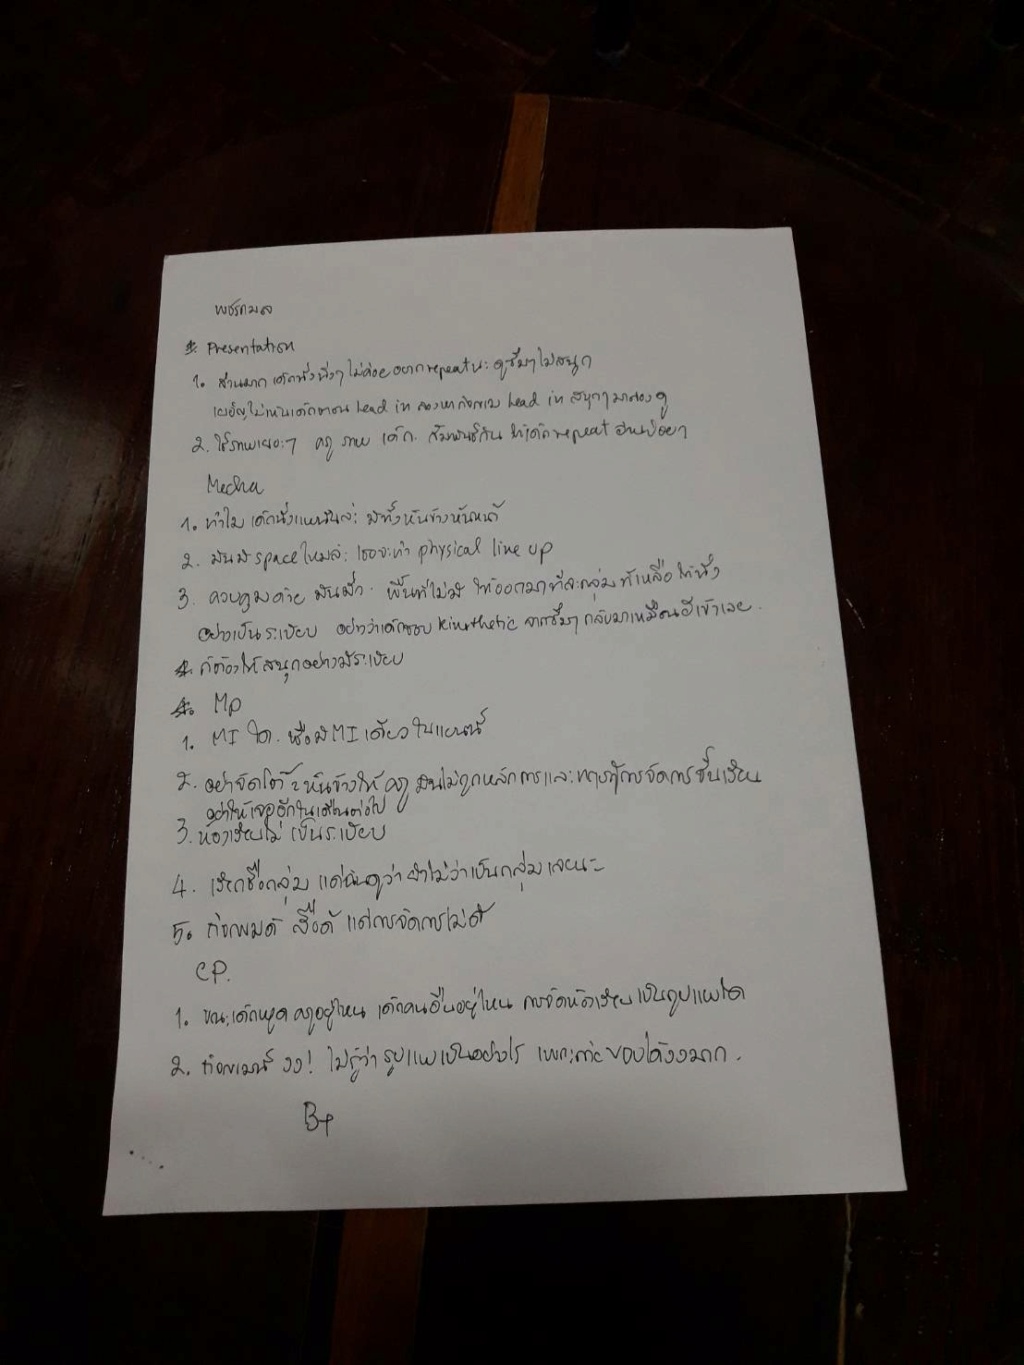 พชรกมล
* Presentation
1. ส่วนมาก เด็กนั่งนิ่งๆ ไม่ค่อยอยาก repeat นะ ดูซึมๆ ไม่สนุก
ไม่เห็นเด็กตอน lead in ลองหากิจกรรม lead in สนุกๆ มาลองดู
2. ใช้ภาพเยอะๆ ครู ภาพ เด็ก สัมพันธ์กัน ให้เด็ก repeat อ่านบ่อยๆ
Mecha
1. ทำไม เด็กนั่งแบบนั้นล่ะ มีทั้งหันข้างหันหน้า
2. มันมี space ไหมล่ะ เธอจะทำ physical line up
3. ควบคุมด้วย มันมั่ว พื้นที่ไม่มี ให้ออกมาทีละกลุ่ม ที่เหลือ ให้นั่ง
อย่างเป็นระเบียบ อย่าว่าเด็กชอบ kinesthetic จากซึมๆ กลับมาเหมือนผีเข้าเลย.
* ก็ต้องให้สนุกอย่างมีระเบียบ
* Mp
1. MI ใด. หรือมี MI เดียวในแผนนี้
2. อย่าจัดโต๊ะหันข้างให้ครู มันไม่ถูกหลักการและทฤษฎีการจัดการชั้นเรียน
อย่าให้เจออีกในเดือนต่อไป
3. ห้องเรียนไม่ เป็นระเบียบ
4. เรียกชื่อกลุ่ม แต่ฉันดูว่า ยังไม่ว่าเป็นกลุ่มเลยนะ
5. กิจกรรมดี สื่อดี แต่การจัดการไม่ดี
CP.
1. ขณะเด็กพูด ครูอยู่ไหน เด็กคนอื่นอยู่ไหน การจัดห้องเรียนเป็นรูปแบบใด
2. กิจกรรมนี้ งง! ไม่รู้ว่า รูปแบบเป็นอย่างไร เพราะ ของได้งงมาก.
B+